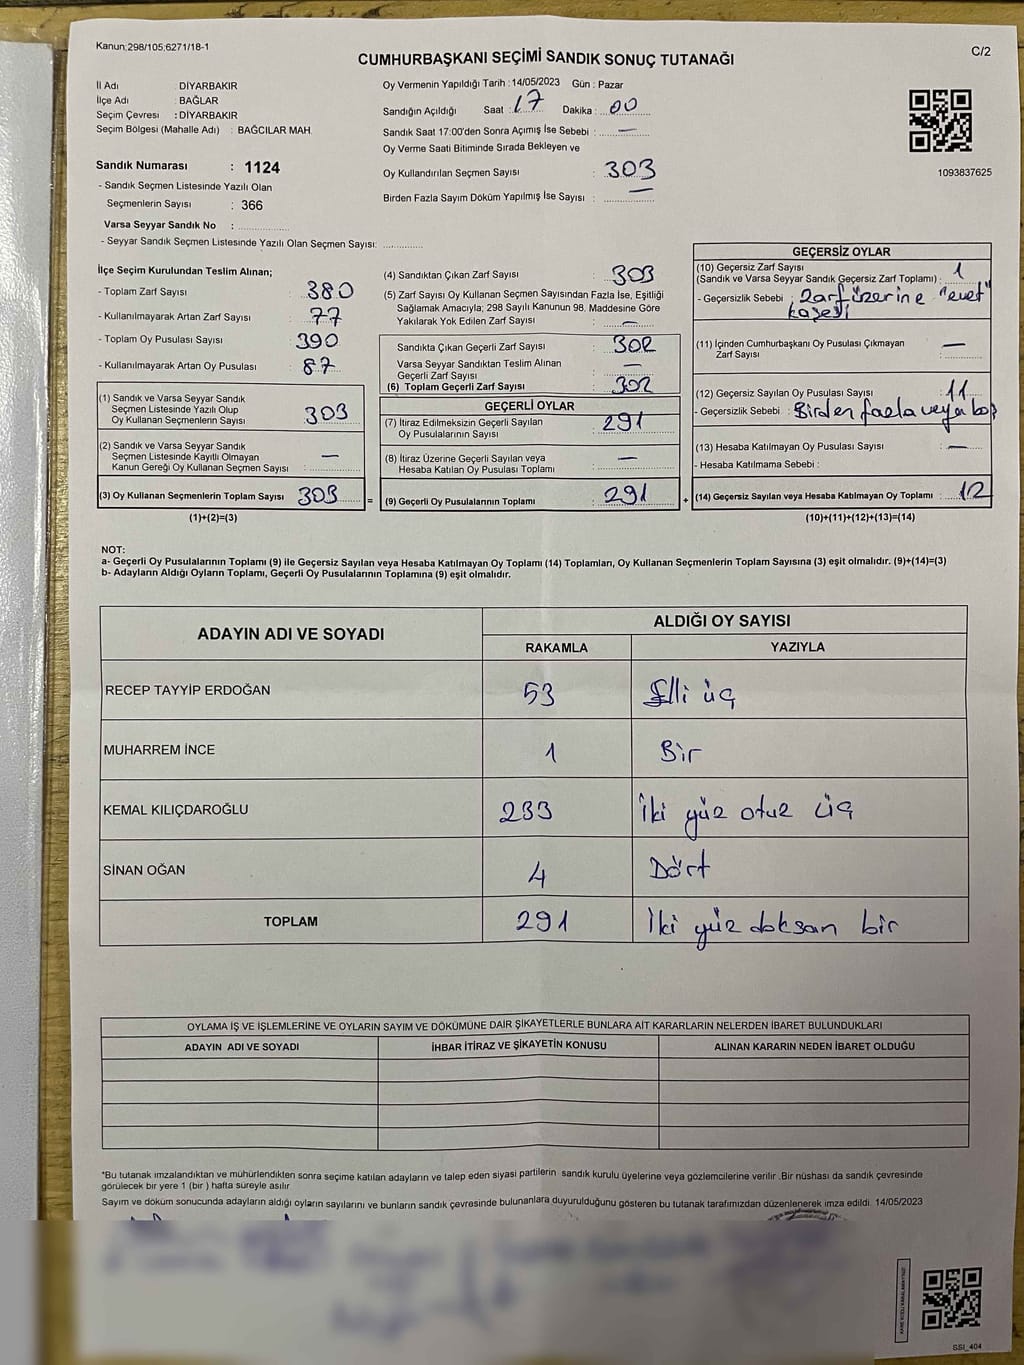 Kanun:298/105;6271/18-1
C/2
CUMHURBAŞKANI SEÇİMİ SANDIK SONUÇ TUTANAĞI
İl Adı : DİYARBAKIR
İlçe Adı : BAĞLAR
Seçim Çevresi : DİYARBAKIR
Seçim Bölgesi (Mahalle Adı) : BAĞCILAR MAH.
Sandık Numarası : 1124
- Sandık Seçmen Listesinde Yazılı Olan
Seçmenlerin Sayısı : 366
Varsa Seyyar Sandık No :
- Seyyar Sandık Seçmen Listesinde Yazılı Olan Seçmen Sayısı:
Oy Vermenin Yapıldığı Tarih : 14/05/2023 Gün : Pazar
Sandığın Açıldığı Saat : 17 Dakika : 00
Sandık Saat 17:00'den Sonra Açımış İse Sebebi : —
Oy Verme Saati Bitiminde Sırada Bekleyen ve
Oy Kullandırılan Seçmen Sayısı : 303
Birden Fazla Sayım Döküm Yapılmış İse Sayısı : —
1093837625
İlçe Seçim Kurulundan Teslim Alınan;
- Toplam Zarf Sayısı : 380
- Kullanılmayarak Artan Zarf Sayısı : 77
- Toplam Oy Pusulası Sayısı : 390
- Kullanılmayarak Artan Oy Pusulası : 87
(1) Sandık ve Varsa Seyyar Sandık
Seçmen Listesinde Yazılı Olup
Oy Kullanan Seçmenlerin Sayısı : 303
(2) Sandık ve Varsa Seyyar Sandık
Seçmen Listesinde Kayıtlı Olmayan
Kanun Gereği Oy Kullanan Seçmen Sayısı : —
(3) Oy Kullanan Seçmenlerin Toplam Sayısı 303 =
(1)+(2)=(3)
(4) Sandıktan Çıkan Zarf Sayısı : 303
(5) Zarf Sayısı Oy Kullanan Seçmen Sayısından Fazla İse, Eşitliği
Sağlamak Amacıyla; 298 Sayılı Kanunun 98. Maddesine Göre
Yakılarak Yok Edilen Zarf Sayısı : —
Sandıkta Çıkan Geçerli Zarf Sayısı : 302
Varsa Seyyar Sandıktan Teslim Alınan
Geçerli Zarf Sayısı : —
(6) Toplam Geçerli Zarf Sayısı : 302
GEÇERLİ OYLAR
(7) İtiraz Edilmeksizin Geçerli Sayılan
Oy Pusulalarının Sayısı : 291
(8) İtiraz Üzerine Geçerli Sayılan veya
Hesaba Katılan Oy Pusulası Toplamı : —
(9) Geçerli Oy Pusulalarının Toplamı : 291 +
GEÇERSİZ OYLAR
(10) Geçersiz Zarf Sayısı
(Sandık ve Varsa Seyyar Sandık Geçersiz Zarf Toplamı) : 1
- Geçersizlik Sebebi : Zarf üzerine "evet"
kaşesi
(11) İçinden Cumhurbaşkanı Oy Pusulası Çıkmayan
Zarf Sayısı : —
(12) Geçersiz Sayılan Oy Pusulası Sayısı : 11
- Geçersizlik Sebebi : Birden fazla veya boş
(13) Hesaba Katılmayan Oy Pusulası Sayısı : —
- Hesaba Katılmama Sebebi :
(14) Geçersiz Sayılan veya Hesaba Katılmayan Oy Toplamı : 12
(10)+(11)+(12)+(13)=(14)
NOT:
a- Geçerli Oy Pusulalarının Toplamı (9) ile Geçersiz Sayılan veya Hesaba Katılmayan Oy Toplamı (14) Toplamları, Oy Kullanan Seçmenlerin Toplam Sayısına (3) eşit olmalıdır. (9)+(14)=(3)
b- Adayların Aldığı Oyların Toplamı, Geçerli Oy Pusulalarının Toplamına (9) eşit olmalıdır.
ADAYIN ADI VE SOYADI
ALDIĞI OY SAYISI
RAKAMLA YAZIYLA
RECEP TAYYİP ERDOĞAN 53 Elli üç
MUHARREM İNCE 1 Bir
KEMAL KILIÇDAROĞLU 233 İki yüz otuz üç
SİNAN OĞAN 4 Dört
TOPLAM 291 İki yüz doksan bir
OYLAMA İŞ VE İŞLEMLERİNE VE OYLARIN SAYIM VE DÖKÜMÜNE DAİR ŞİKAYETLERLE BUNLARA AİT KARARLARIN NELERDEN İBARET BULUNDUKLARI
ADAYIN ADI VE SOYADI İHBAR İTİRAZ VE ŞİKAYETİN KONUSU ALINAN KARARIN NEDEN İBARET OLDUĞU
*Bu tutanak imzalandıktan ve mühürlendikten sonra seçime katılan adayların ve talep eden siyasi partilerin sandık kurulu üyelerine veya gözlemcilerine verilir .Bir nüshası da sandık çevresinde
görülecek bir yere 1 (bir ) hafta süreyle asılır.
Sayım ve döküm sonucunda adayların aldığı oyların sayılarını ve bunların sandık çevresinde bulunanlara duyurulduğunu gösteren bu tutanak tarafımızdan düzenlenerek imza edildi. 14/05/2023
SSI_404